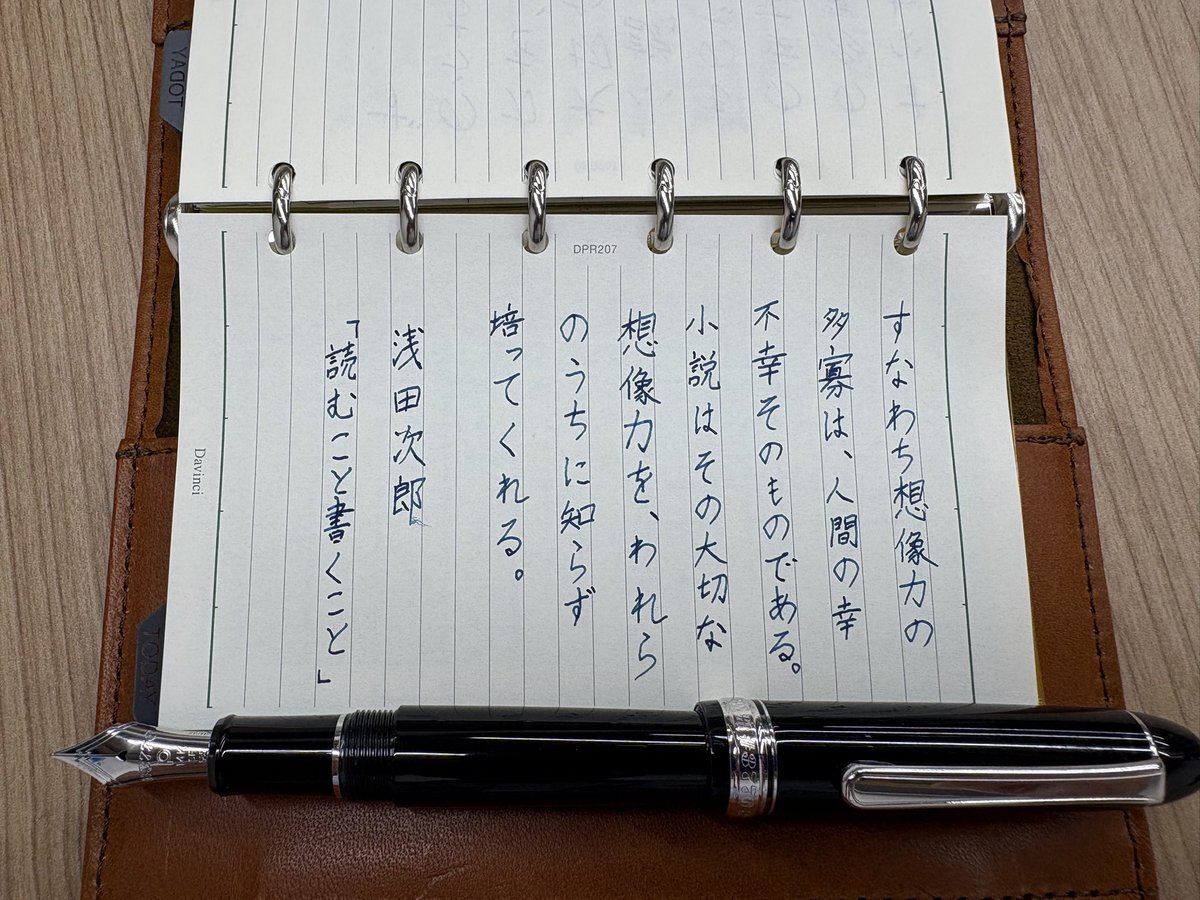 すなわち想像力の
多寡は、人間の幸
不幸そのものである。
小説はその大切な
想像力を、われら
のうちに知らず
培ってくれる。
浅田次郎
「読むこと書くこと」
DPR207
Davinci
TODAY
TODAY